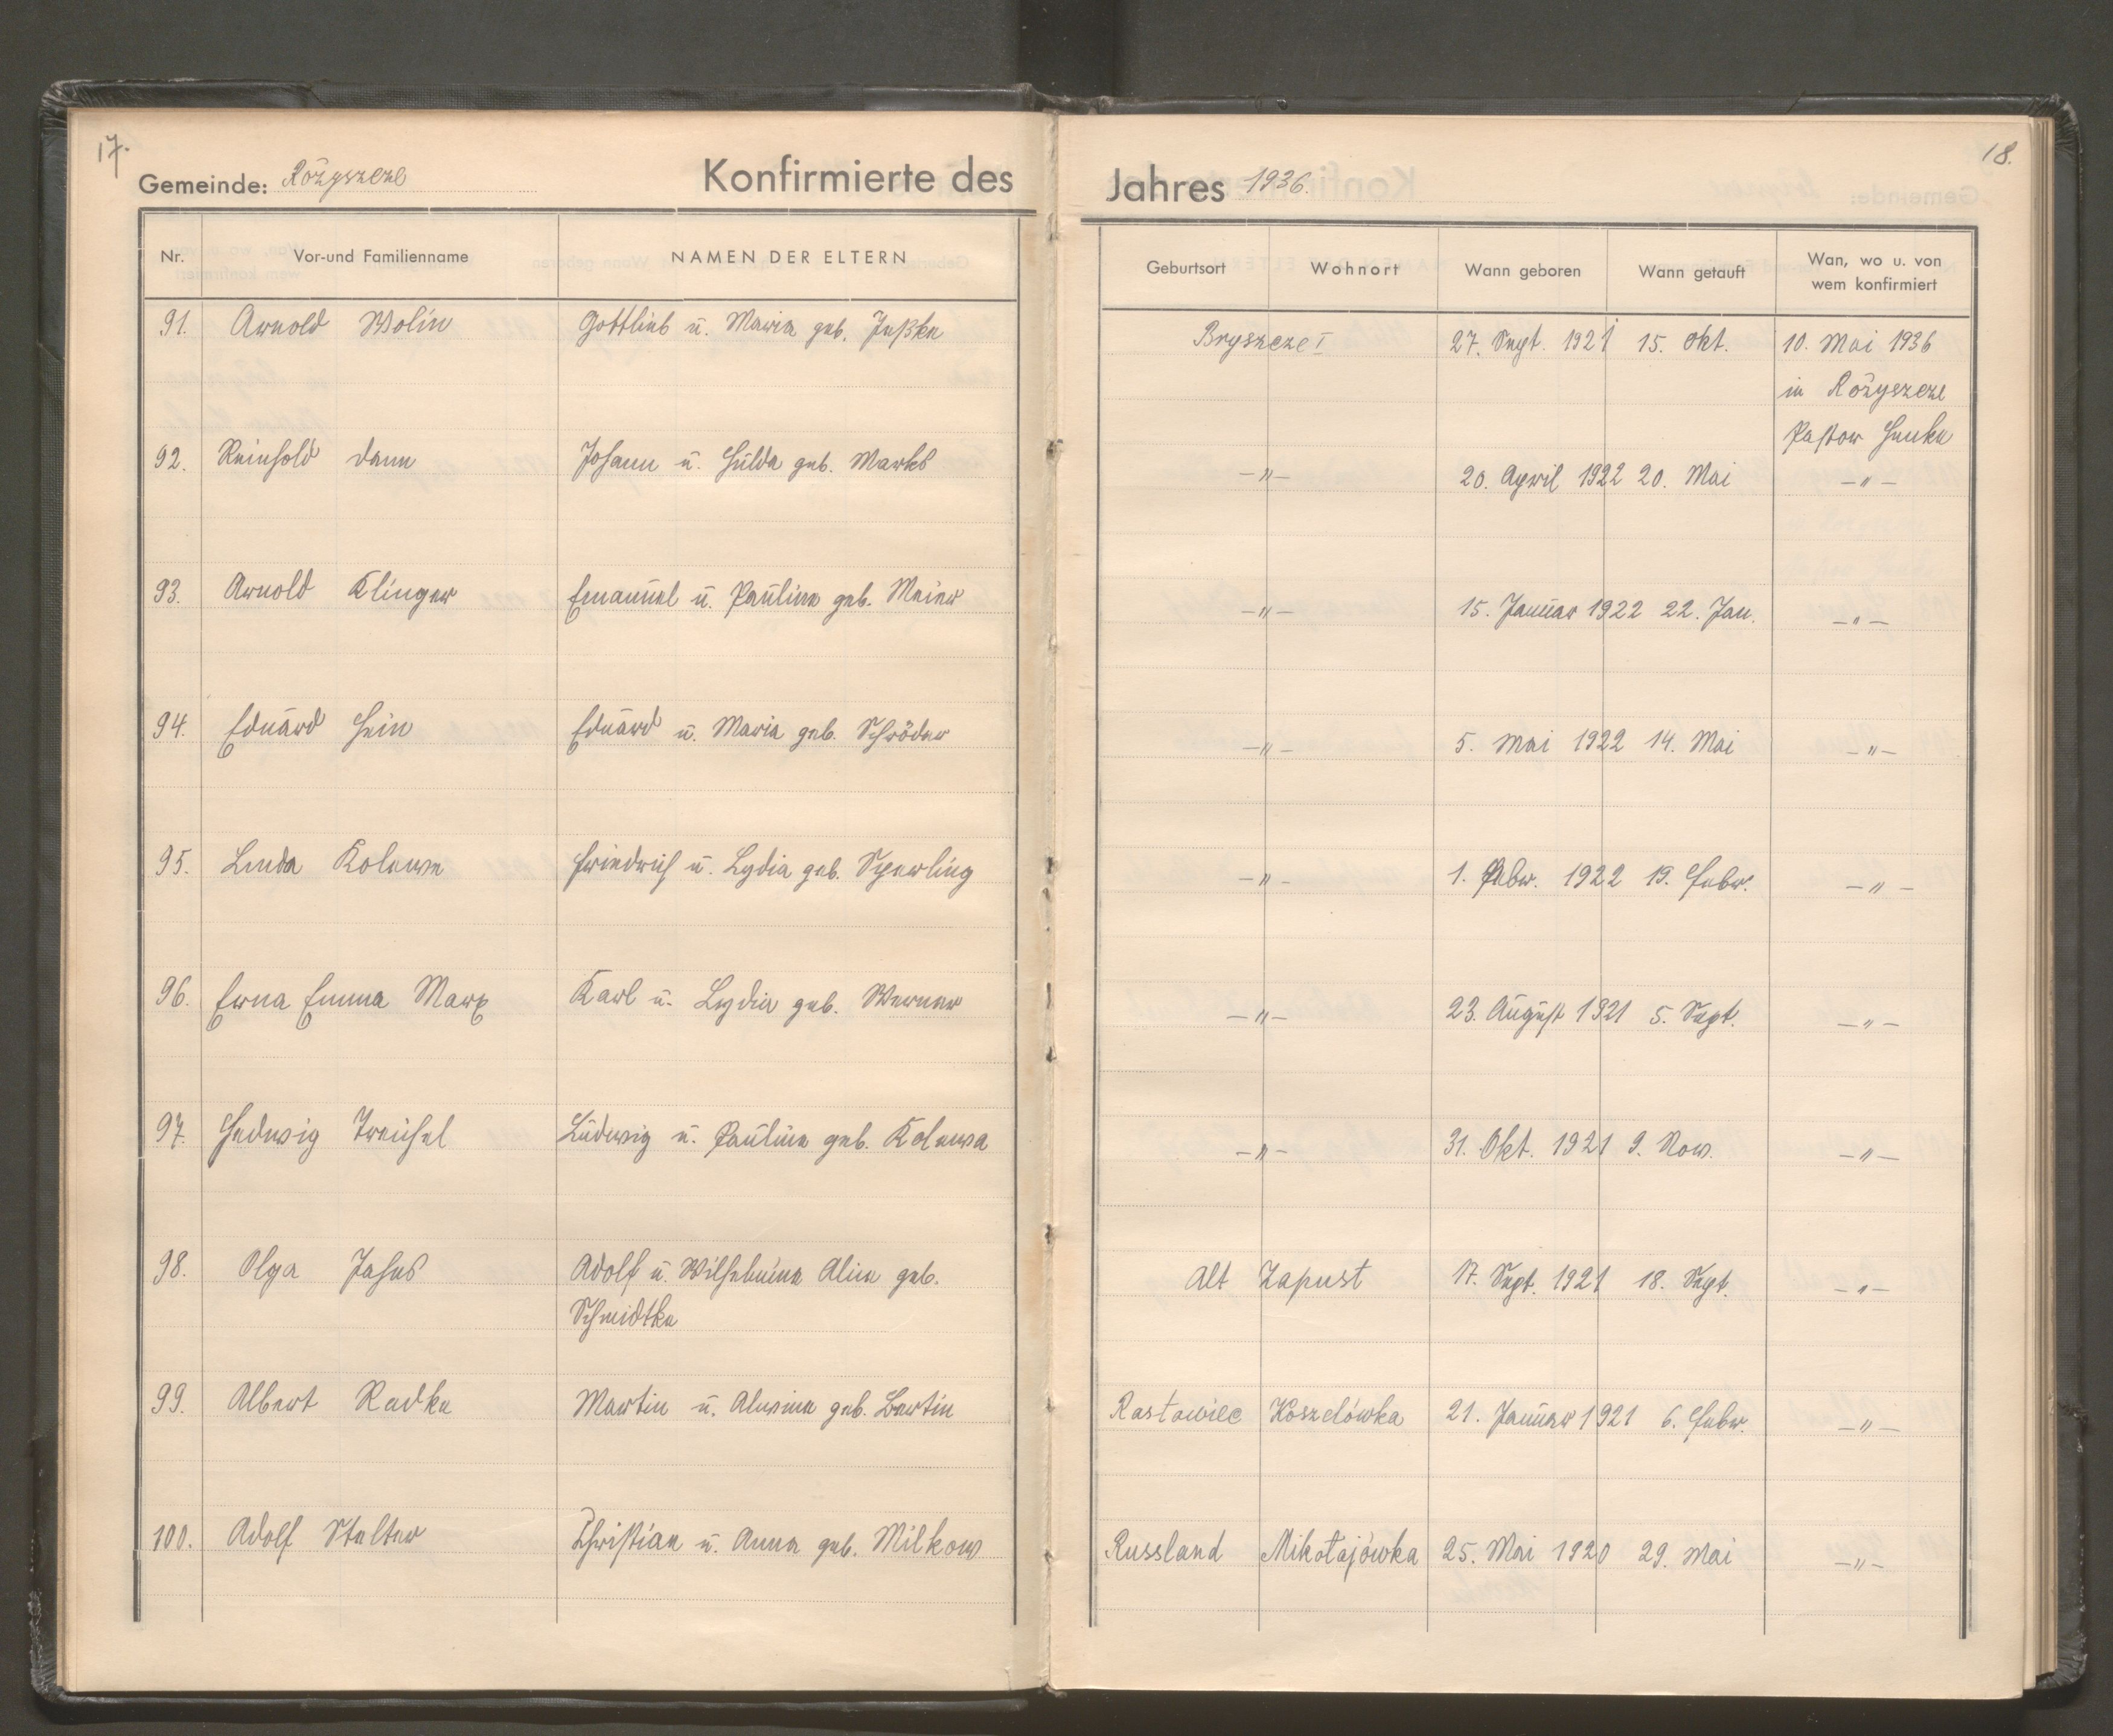 17.
18.
Gemeinde: Rożyszcze
Konfirmierte des
Jahres 1936.
Nr. Vor-und Familienname NAMEN DER ELTERN Geburtsort Wohnort Wann geboren Wann getauft Wan, wo u. von wem konfirmiert
91. Arnold Wolin Gottlieb u. Maria geb. Jeßke Bryszcze I 27. Sept. 1921 15. Okt. 10. Mai 1936
in Rożyszcze
Pastor Henke
92. Reinhold Damm Johann u. Hulda geb. Marks -"- 20. April 1922 20. Mai -"-
93. Arnold Klinger Emanuel u. Pauline geb. Meier -"- 15. Januar 1922 22. Jan. -"-
94. Eduard Hein Eduard u. Maria geb. Schröder -"- 5. Mai 1922 14. Mai -"-
95. Linda Kolewe Friedrich u. Lydia geb. Sperling -"- 1. Febr. 1922 19. Febr. -"-
96. Erna Emma Marx Karl u. Lydia geb. Werner -"- 23. August 1921 5. Sept. -"-
97. Hedwig Treichel Ludwig u. Pauline geb. Kolewa -"- 31. Okt. 1921 9. Nov. -"-
98. Olga Jahns Adolf u. Wilhelmine Aline geb. Alt Zapust 17. Sept. 1921 18. Sept. -"-
Schmidtke
99. Albert Radke Martin u. Alwine geb. Bertin Rastowiec Koszelówka 21. Januar 1921 6. Febr. -"-
100. Adolf Stelter Christian u. Anna geb. Milkow Russland Mikołajówka 25. Mai 1920 29. Mai -"-